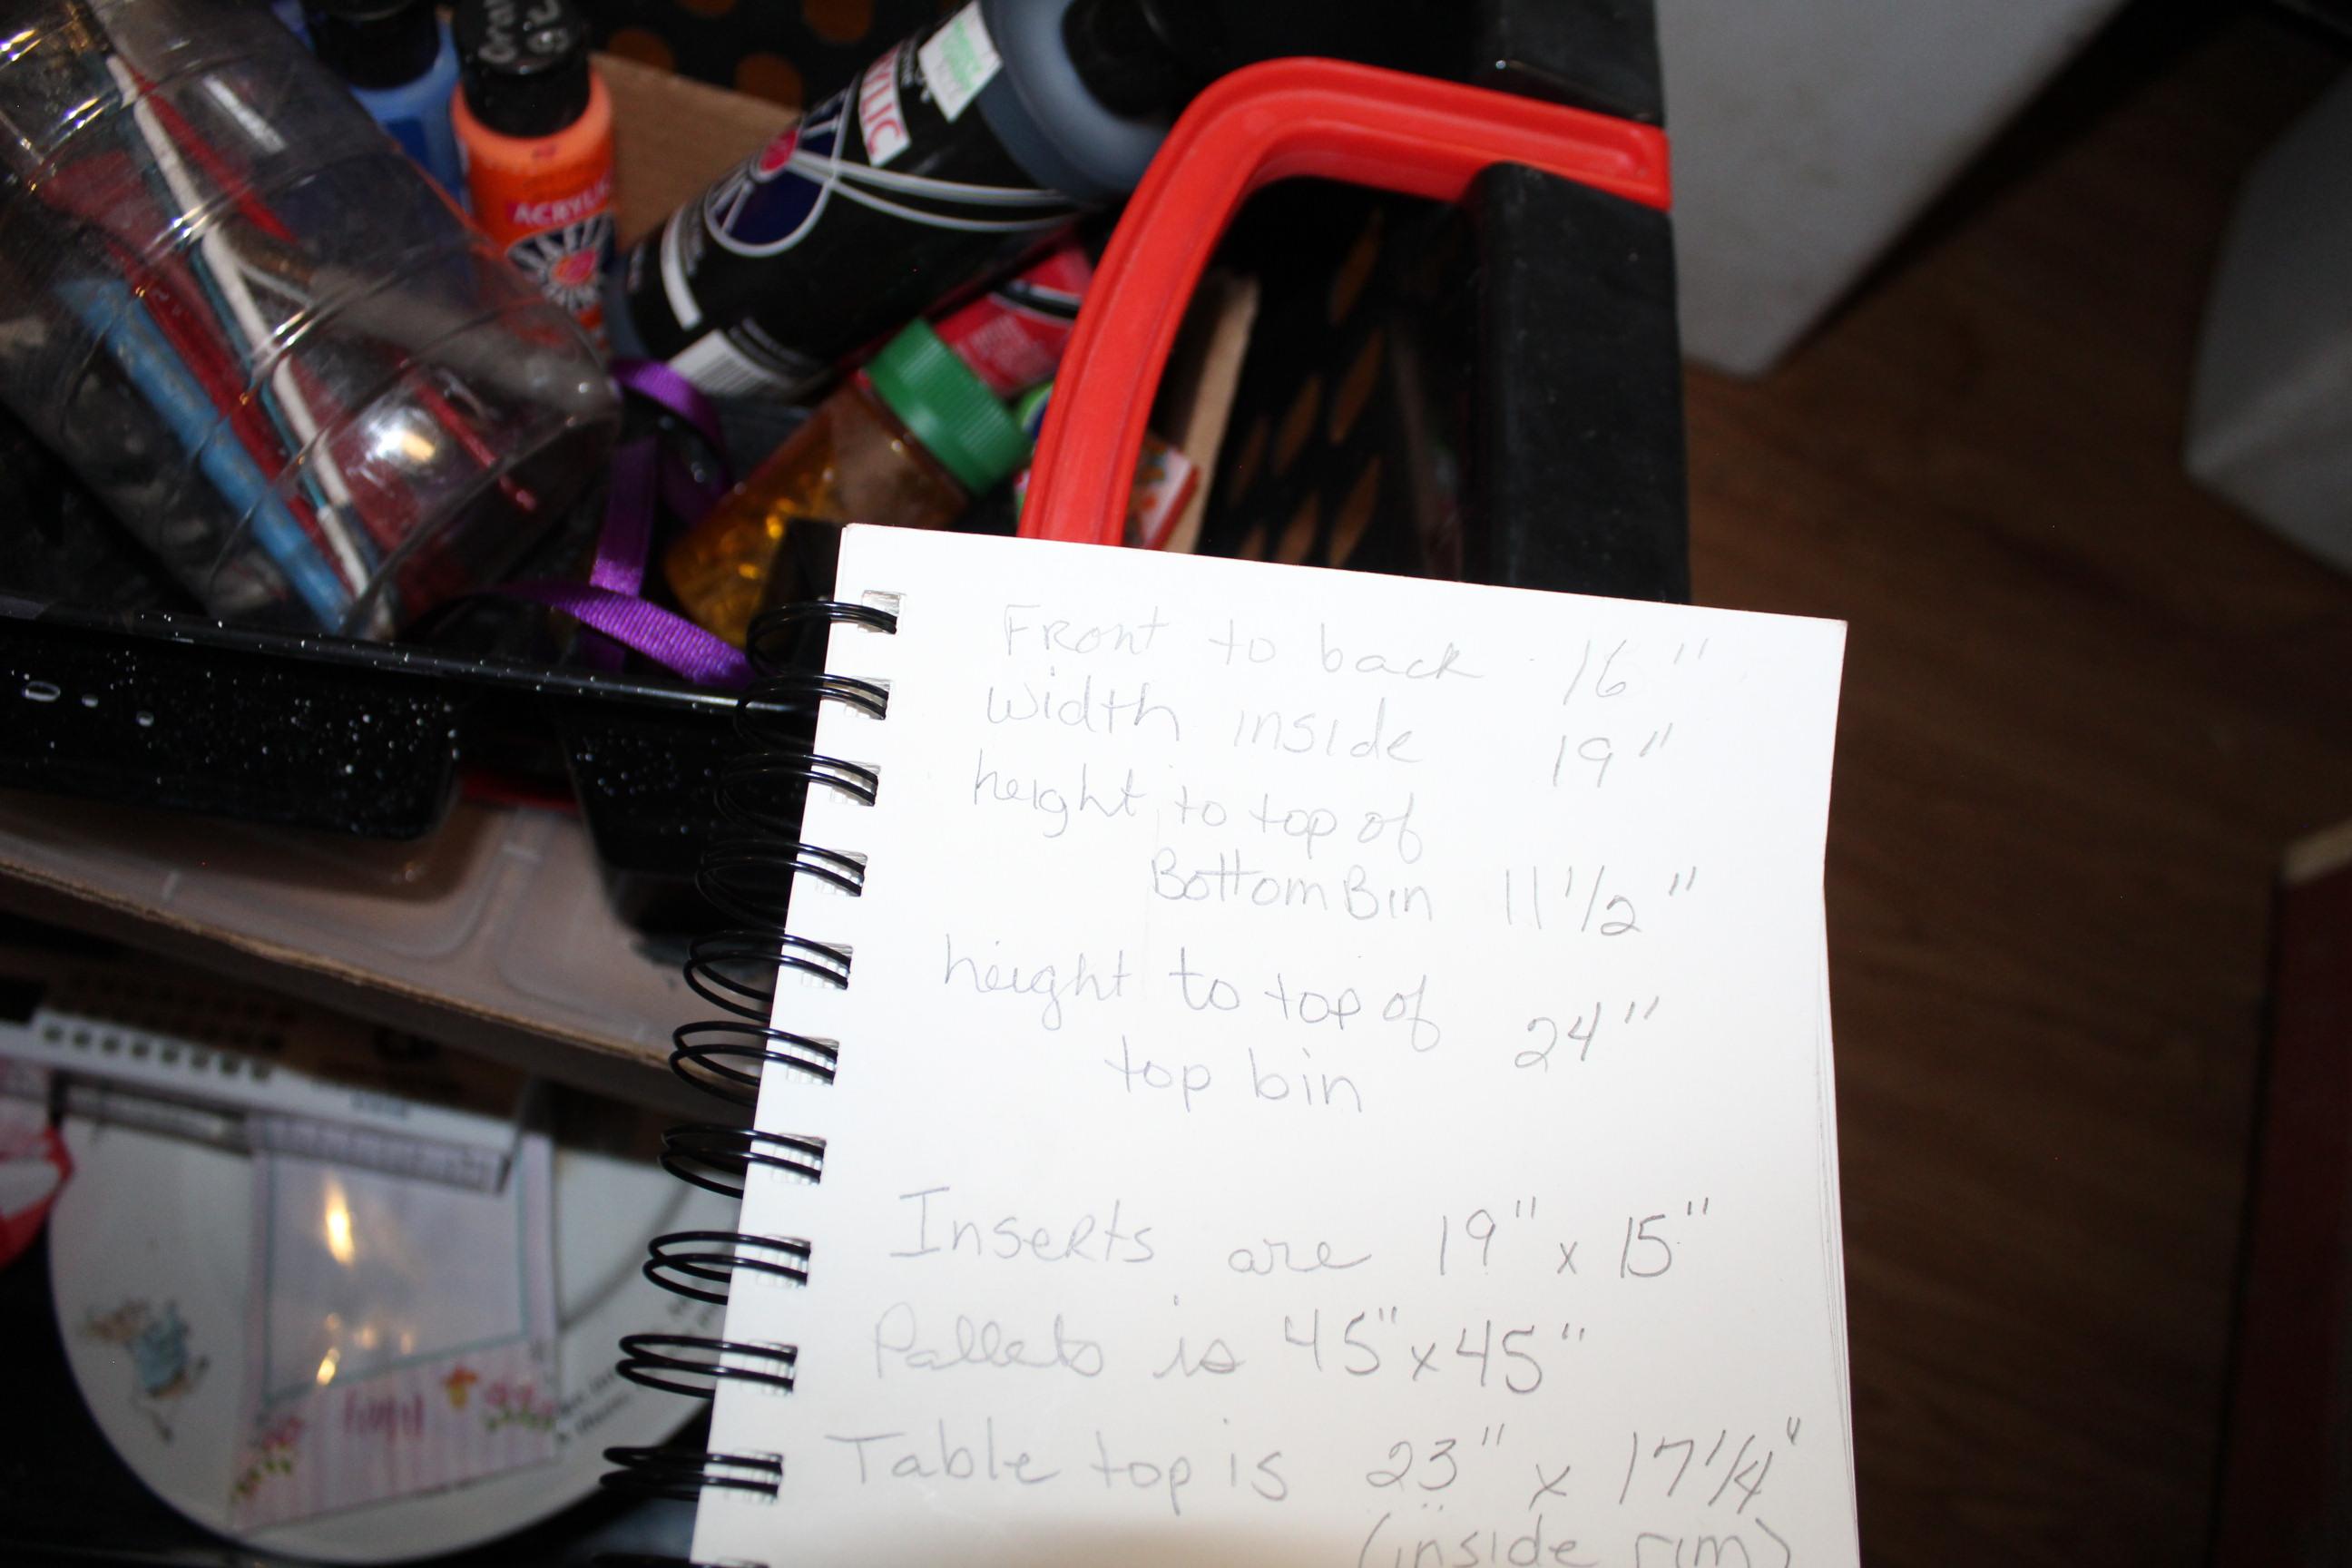 ACRYLIC
YLIC
Front to back 16"
width inside 19"
height to top of
Bottom Bin 11 1/2"
height to top of 24"
top bin
Inserts are 19" x 15"
Pallets is 45" x 45"
Table top is 23" x 17 1/4"
(inside rim)